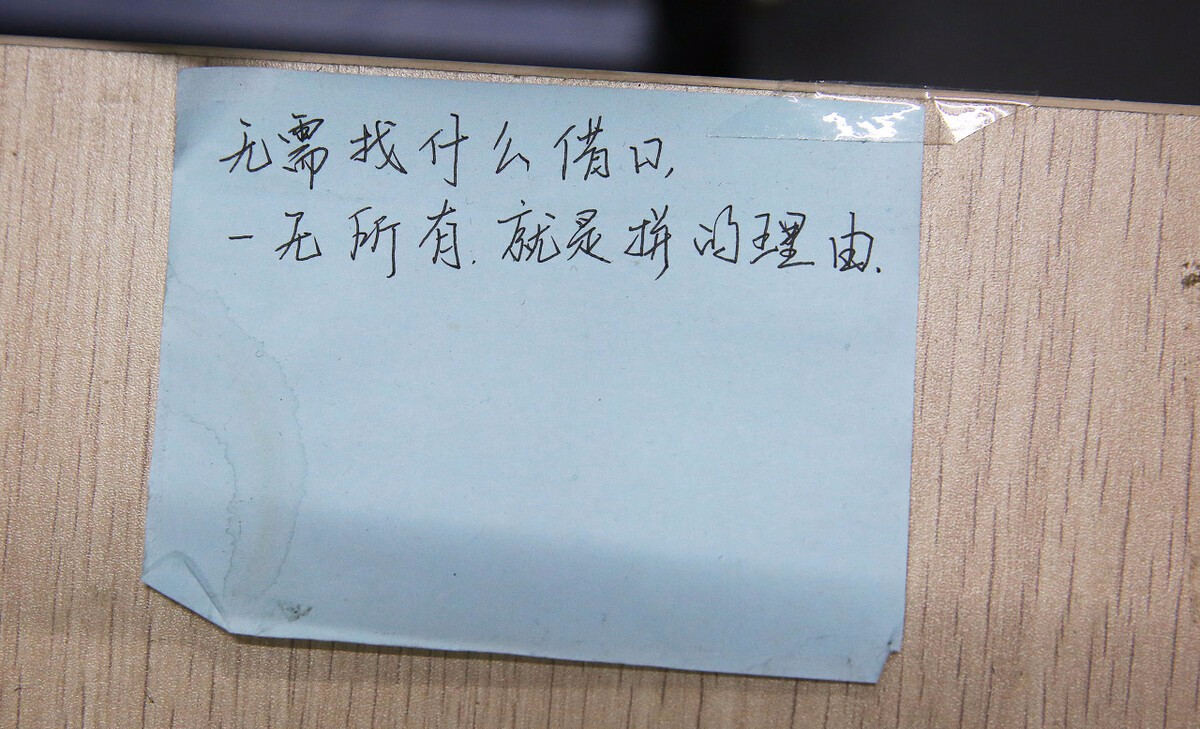 无需找什么借口,
一无所有.就是拼的理由.